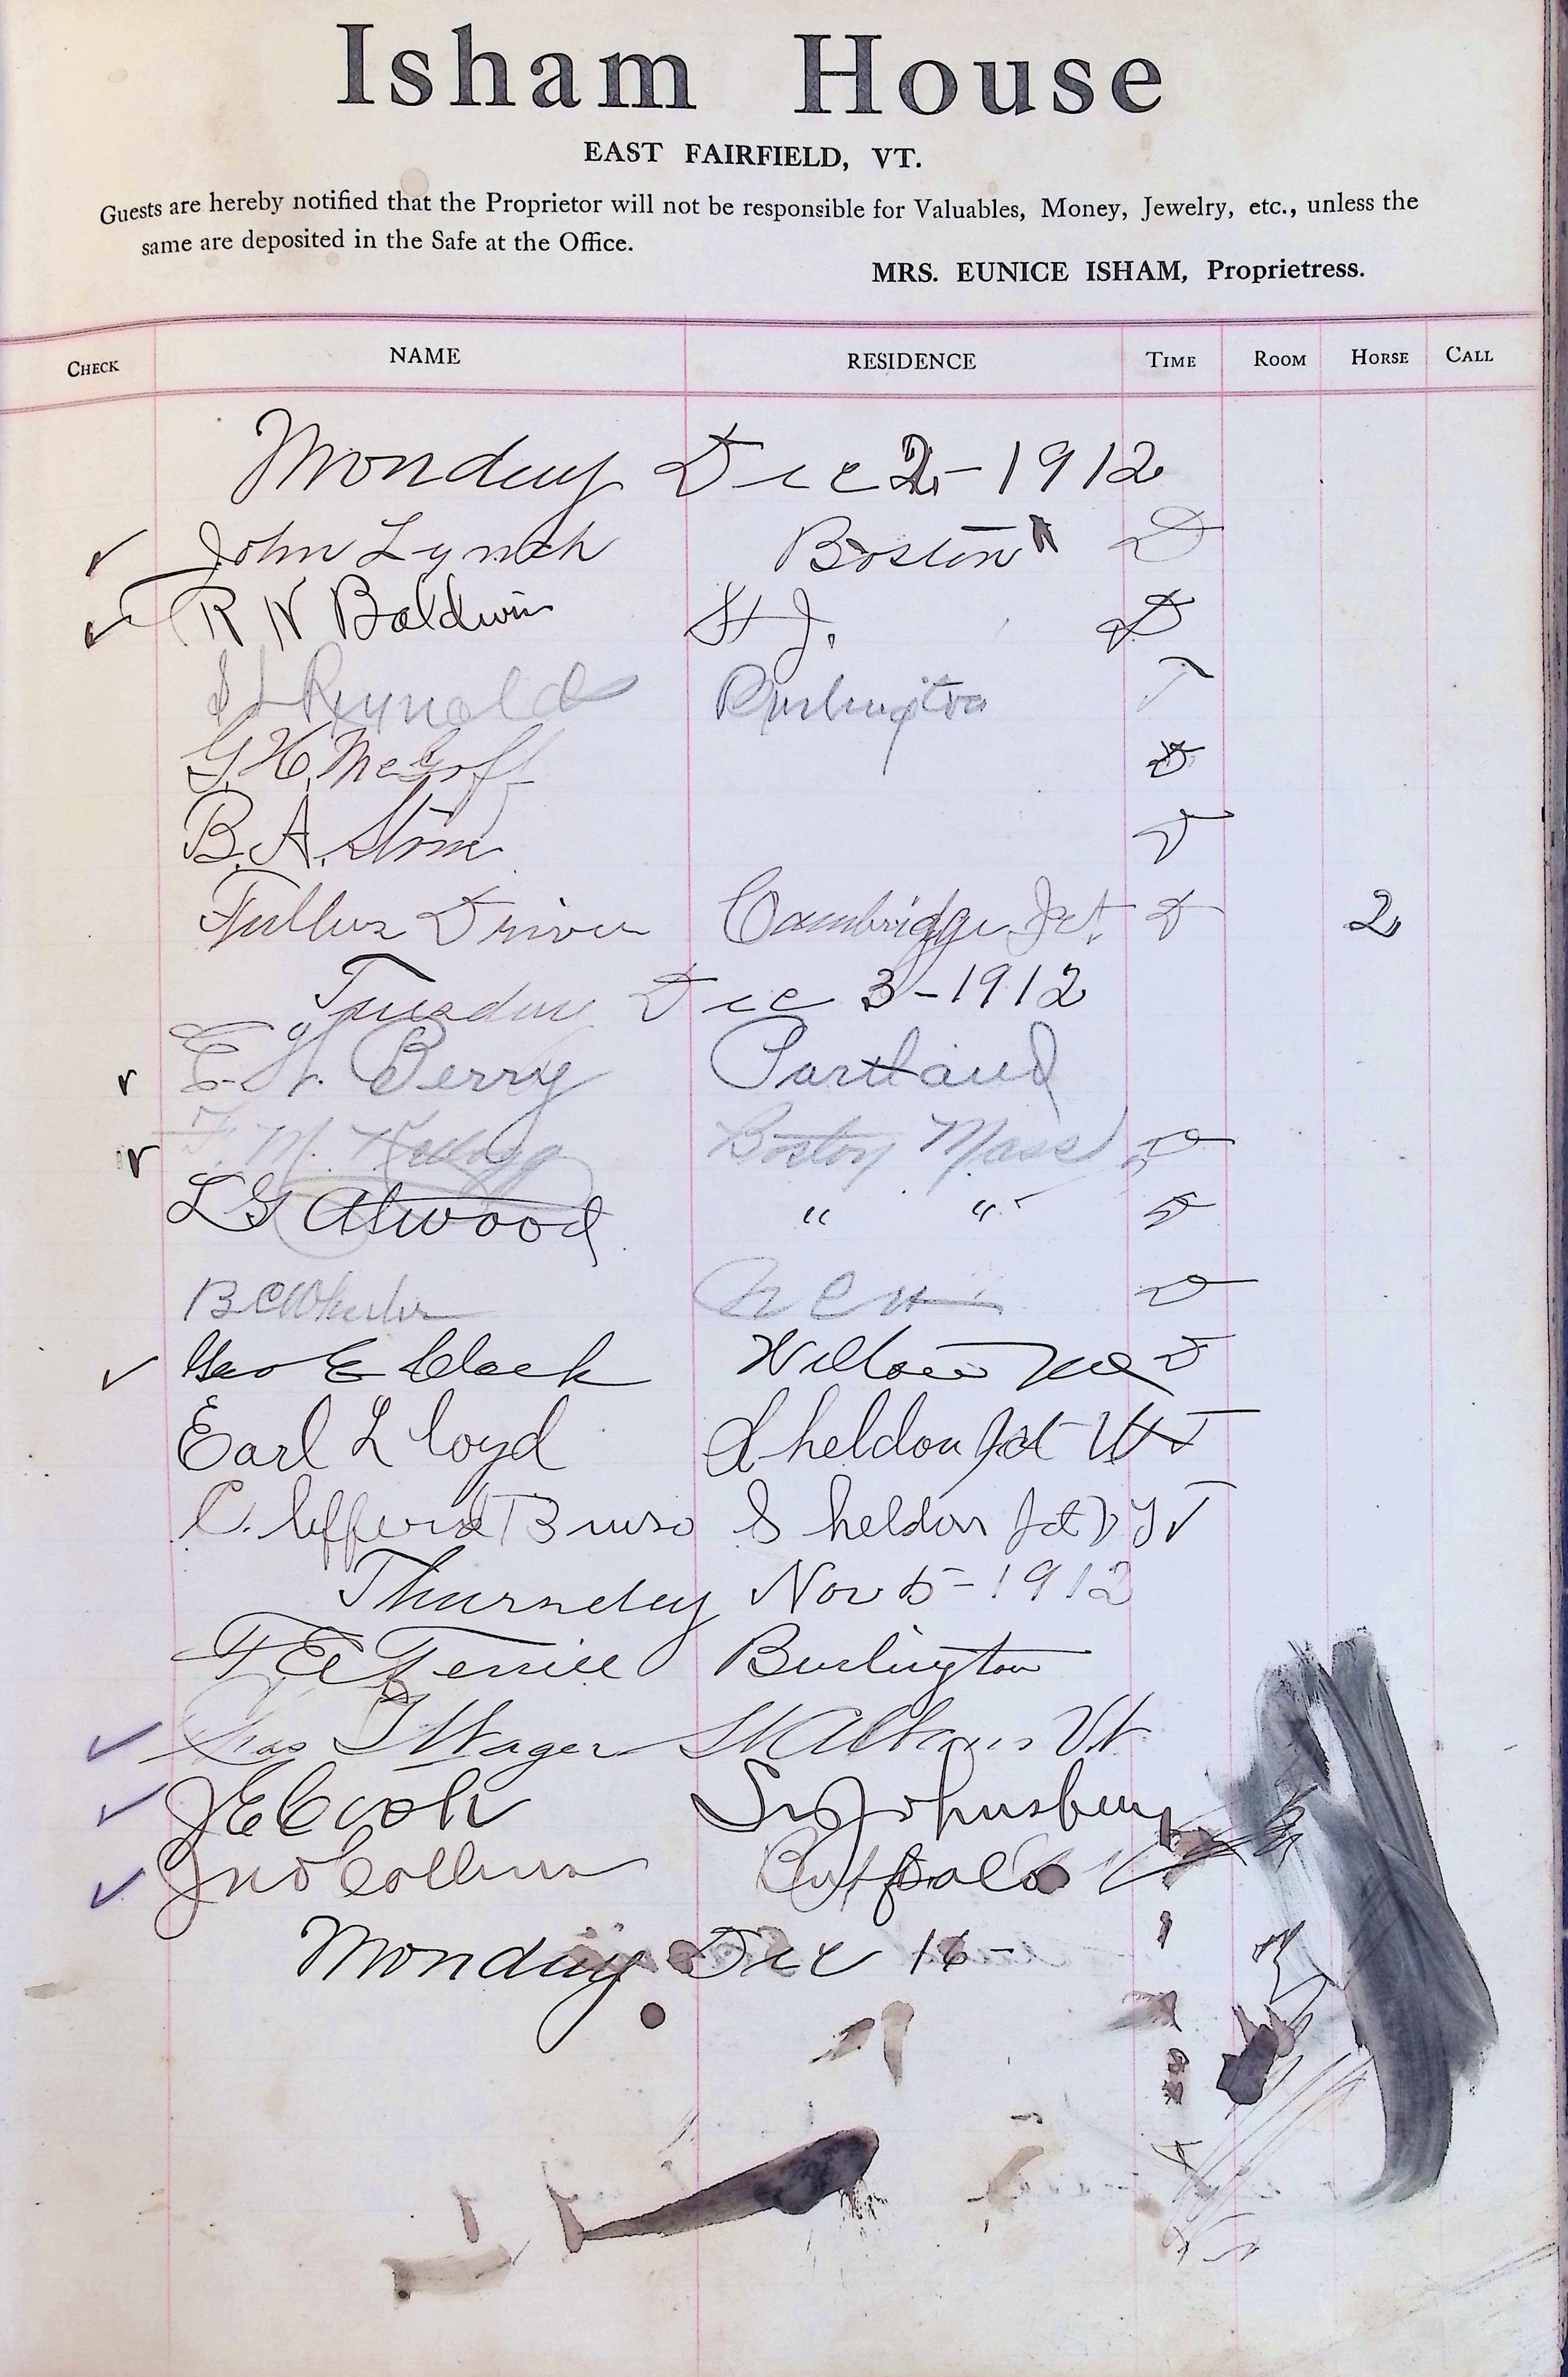 Isham House
EAST FAIRFIELD, VT.
Guests are hereby notified that the Proprietor will not be responsible for Valuables, Money, Jewelry, etc., unless the
same are deposited in the Safe at the Office.
MRS. EUNICE ISHAM, Proprietress.
CHECK NAME RESIDENCE TIME ROOM HORSE CALL
Monday Dec 2-1912
John Lynch Boston D
R N Baldwin St J. D
S L Reynolds Burlington
G. H. D
B. A. Stone
Fuller Driver Cambridge Jct. D 2
Tuesday Dec 3-1912
E. W. Berry Portland
F. M. Kellogg Boston Mass D
L G Atwood " "
B C Wheeler D
Geo E Clark
Earl Lloyd Sheldon Jct Vt
Clifford Sheldon Jct
Thursday Nov 5-1912
Burlington
St Albans Vt
J E Cook St Johnsbury
Jno Collins Buffalo
Monday Dec 16-